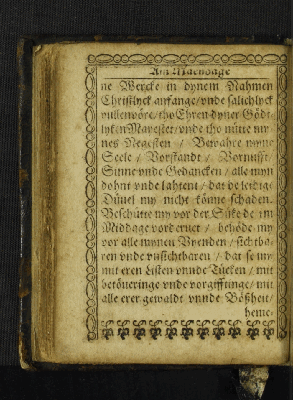 Am Mandage
ne Wercke in dynem Nahmen
Christlyck anfange / vnde salichlyck
vullenvöre / tho Ehren dyner Gödt
lyken Mayestet / vnde tho nütte my
nes Negesten / Beware myne
Seele / Vorstandt / Vornufft /
Sinne vnde Gedancken / alle myn
dohnt vnde lahtent / dat de leidige
Düuel my nicht könne schaden.
Beschütte my vor der Süke de im
Middage vorderuet / behöde my
vor alle mynen Vyenden / sichtba-
ren vnde vnsichtbaren / dat se my
mit eren Listen vnnde Tücken / mit
betöueringe vnde vorgifftinge / mit
alle erer gewaldt vnnde Bößheit /
heime-